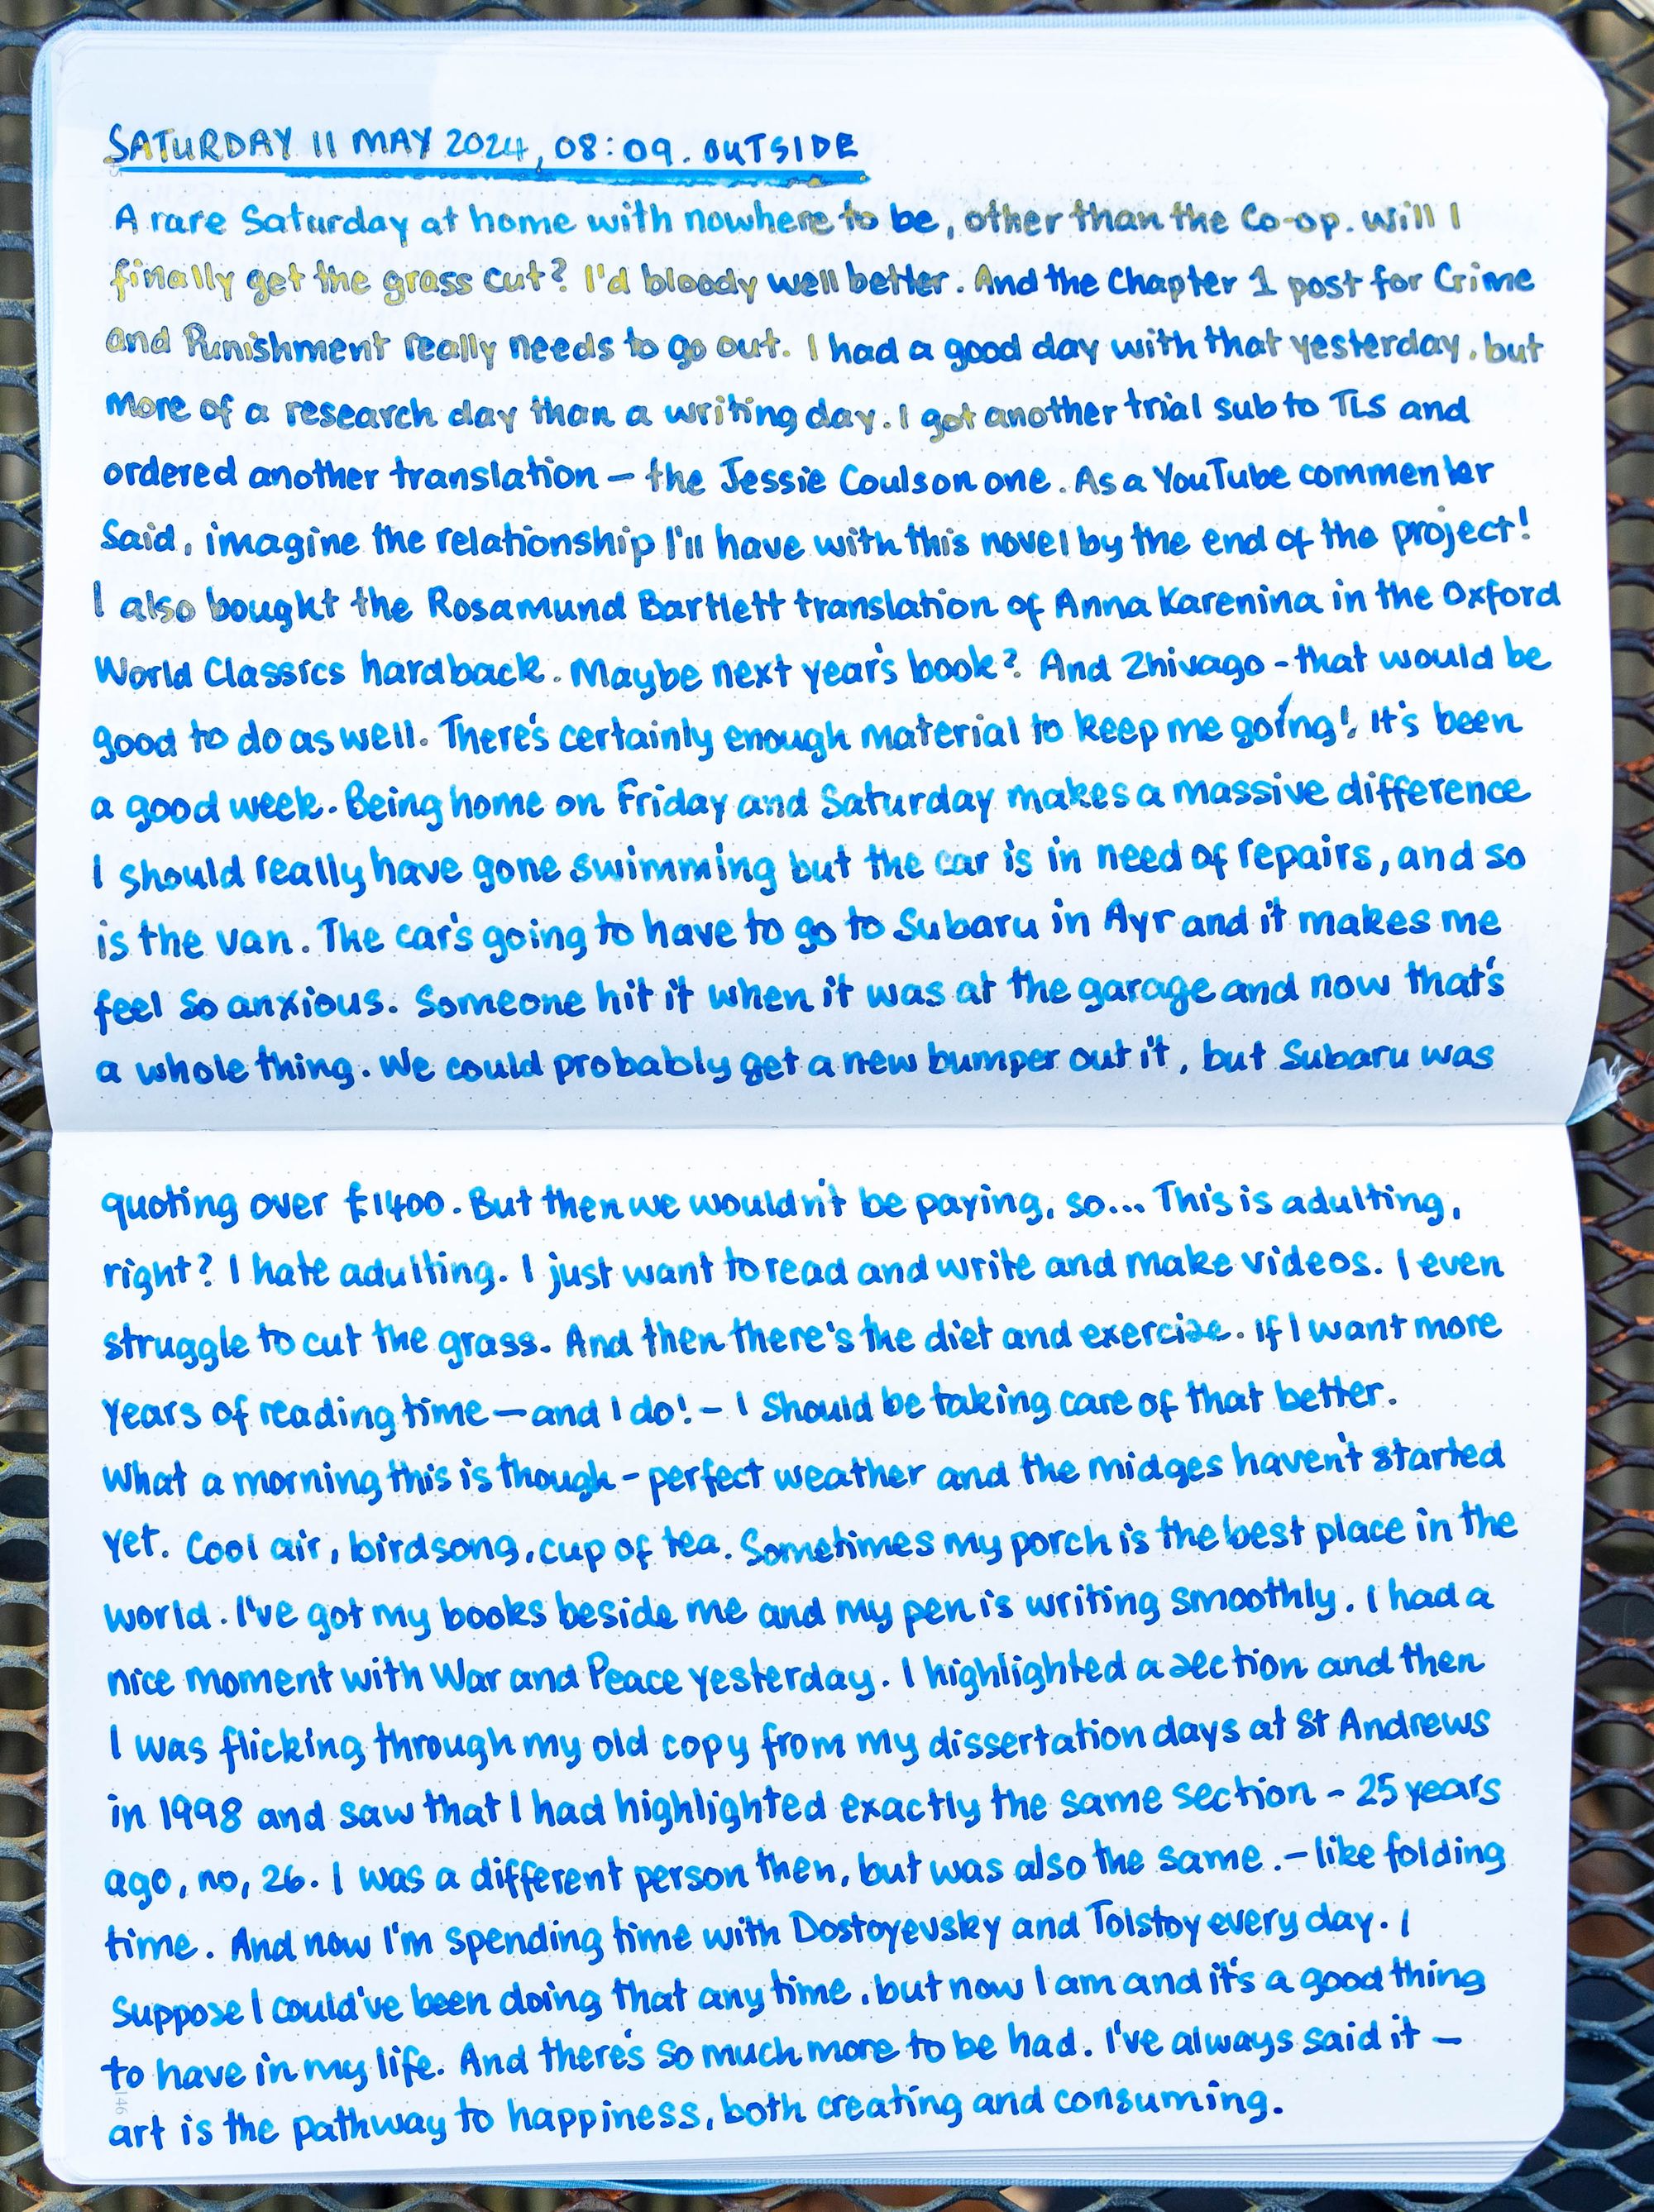 SATURDAY 11 MAY 2024, 08:09. OUTSIDE
A rare Saturday at home with nowhere to be, other than the Co-op. Will I
finally get the grass cut? I'd bloody well better. And the Chapter 1 post for Crime
and Punishment really needs to go out. I had a good day with that yesterday, but
more of a research day than a writing day. I got another trial sub to TLS and
ordered another translation – the Jessie Coulson one. As a YouTube commenter
said, imagine the relationship I'll have with this novel by the end of the project!
I also bought the Rosamund Bartlett translation of Anna Karenina in the Oxford
World Classics hardback. Maybe next year's book? And Zhivago - that would be
good to do as well. There's certainly enough material to keep me going! It's been
a good week. Being home on Friday and Saturday makes a massive difference
I should really have gone swimming but the car is in need of repairs, and so
is the van. The car's going to have to go to Subaru in Ayr and it makes me
feel so anxious. Someone hit it when it was at the garage and now that's
a whole thing. We could probably get a new bumper out it, but Subaru was
quoting over £1400. But then we wouldn't be paying, so... This is adulting,
right? I hate adulting. I just want to read and write and make videos. I even
struggle to cut the grass. And then there's the diet and exercise. If I want more
years of reading time – and I do! – I should be taking care of that better.
What a morning this is though – perfect weather and the midges haven't started
yet. Cool air, birdsong, cup of tea. Sometimes my porch is the best place in the
world. I've got my books beside me and my pen is writing smoothly. I had a
nice moment with War and Peace yesterday. I highlighted a section and then
I was flicking through my old copy from my dissertation days at St Andrews
in 1998 and saw that I had highlighted exactly the same section – 25 years
ago, no, 26. I was a different person then, but was also the same. – like folding
time. And now I'm spending time with Dostoyevsky and Tolstoy every day. I
suppose I could've been doing that any time, but now I am and it's a good thing
to have in my life. And there's so much more to be had. I've always said it –
art is the pathway to happiness, both creating and consuming.
146